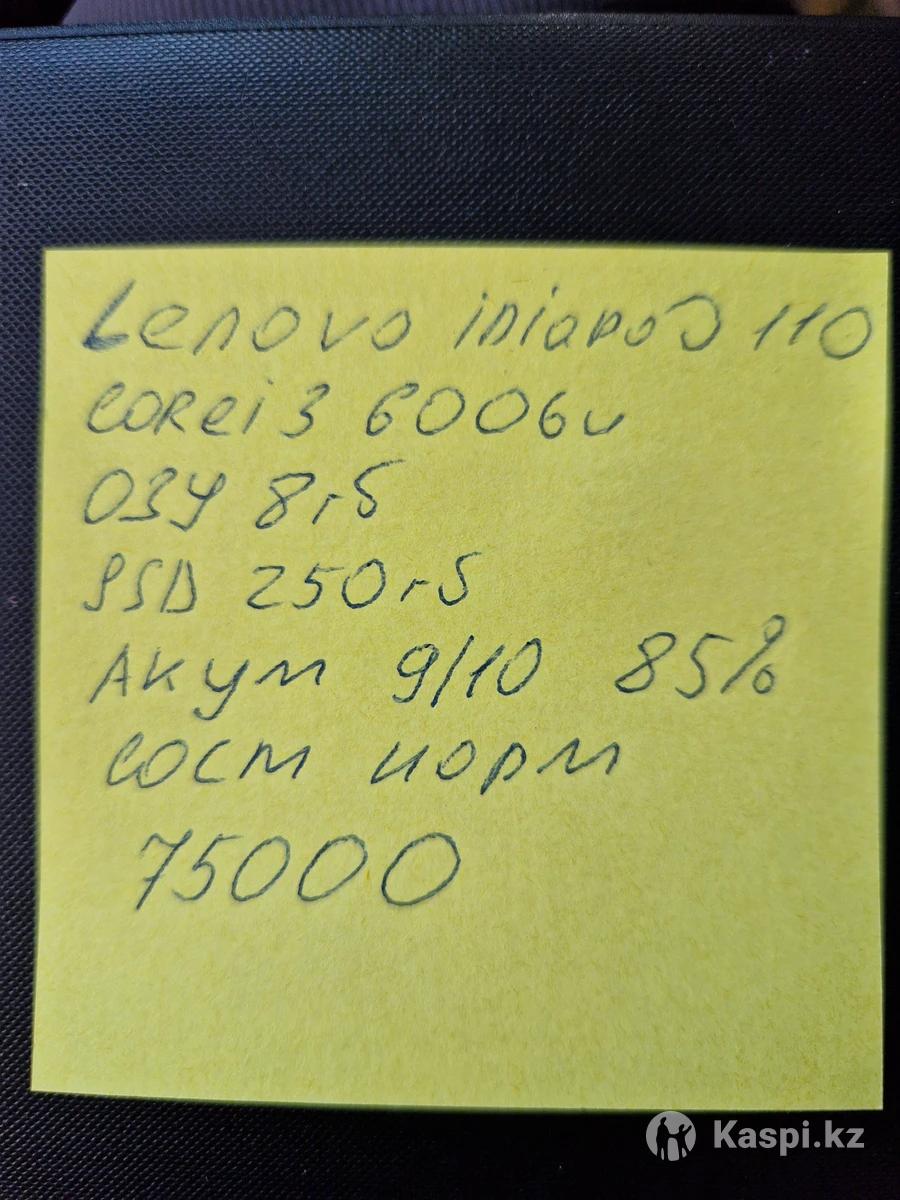 Lenovo iDiapaD 110
CORei3 6006u
ОЗУ 8гб
SSD 250гб
Акум 9/10 85%
сост норм
75000
Kaspi.kz